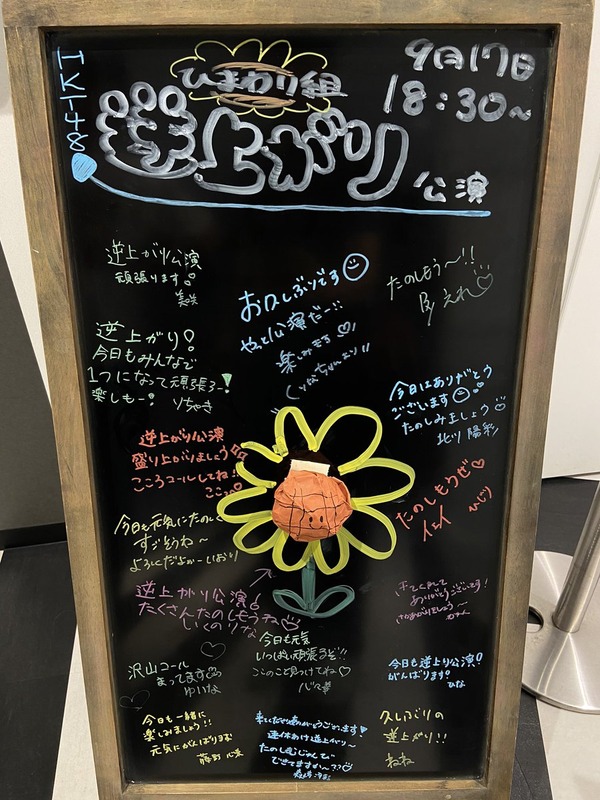 HKT48
ひまわり組
9月17日
18:30～
逆上がり
公演
逆上がり公演
頑張ります!
美咲
おひしぶりです
やっと公演だー!!
楽しみます♡
たのしもう～!!
逆上がり!
今日もみんなで
1つになって頑張ろー!
楽しもー!
りちゃき
今日はありがとう
ございます
たのしみましょう
北川 陽彩
逆上がり公演
盛り上がりましょう
こころコールしてね!!
ここっ♡
たのしもうぜ♡
イェイ
今日も元気にたのしく
すごそうね～
よろしくだよんーいおり
逆上がり公演
たくさんたのしもうね
いくのりな
きてくれて
ありがとうございます!
さかあがりましょう～
今日も元気
いっぱい頑張るぞ!!
沢山コール
まってます
ゆいな
今日も逆上り公演!
がんばります!
ひな
今日も一緒に
楽しみましょう!!
元気にがんばります
来てくださりありがとうございます
連休あけ逆上がり～
たのしむじゅんび
できてますか～??
久しぶりの
逆上がり!!
ねね